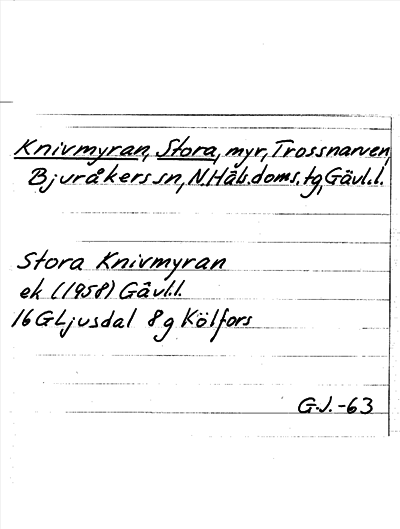 Knivmyran, Stora, myr, Trossnarven,
Bjuråkers sn, N.Häls.doms.tg, Gävl.l.
Stora Knivmyran
ek (1958) Gävl.l.
16G Ljusdal 8g Kölfors
G.J.-63